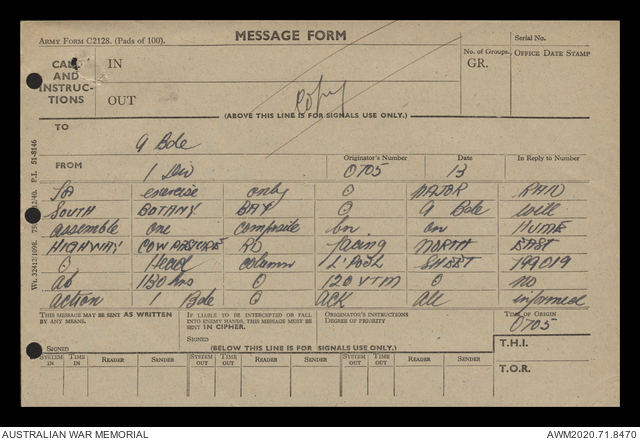 ARMY FORM C2128. (Pads of 100).
MESSAGE FORM
Serial No.
CALL AND INSTRUCTIONS
IN
OUT
No. of Groups.
GR.
OFFICE DATE STAMP
Copy
(ABOVE THIS LINE IS FOR SIGNALS USE ONLY.)
TO
9 Bde
FROM
1 Div
Originator's Number
0705
Date
13
In Reply to Number
exercise only O MAJOR RAID
SOUTH BOTANY BAY O 9 Bde will
assemble one composite bn. on HUME
HIGHWAY COWPASTURE RD facing NORTH EAST
O Head column L'POOL SHEET 199019
at 1130 hrs O 120 VTM O no
action 1 Bde O ACK All informed
THIS MESSAGE MAY BE SENT AS WRITTEN BY ANY MEANS.
IF LIABLE TO BE INTERCEPTED OR FALL INTO ENEMY HANDS, THIS MESSAGE MUST BE SENT IN CIPHER.
ORIGINATOR'S INSTRUCTIONS
DEGREE OF PRIORITY
TIME OF ORIGIN
0705
SIGNED
SIGNED
(BELOW THIS LINE IS FOR SIGNALS USE ONLY.)
T.H.I.
SYSTEM IN TIME IN READER SENDER SYSTEM OUT TIME OUT READER SENDER SYSTEM OUT TIME OUT READER SENDER
T.O.R.
51-8146
AUSTRALIAN WAR MEMORIAL
AWM2020.71.8470